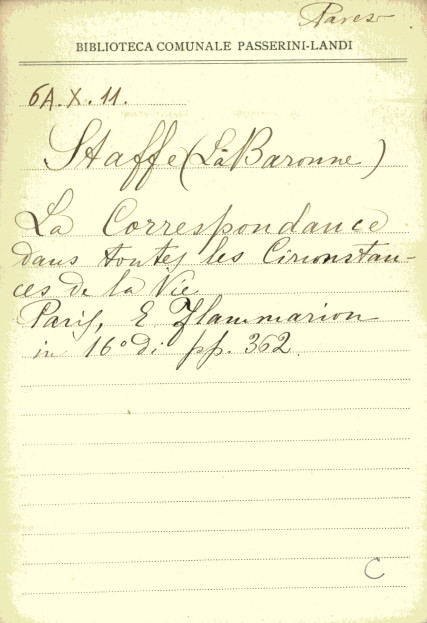 Pares
BIBLIOTECA COMUNALE PASSERINI-LANDI
6A.X.11.
Staffe (La Baronne)
La Correspondance
dans toutes les Circonstan-
ces de la Vie
Paris, E Flammarion
in 16° di pp. 362.
C